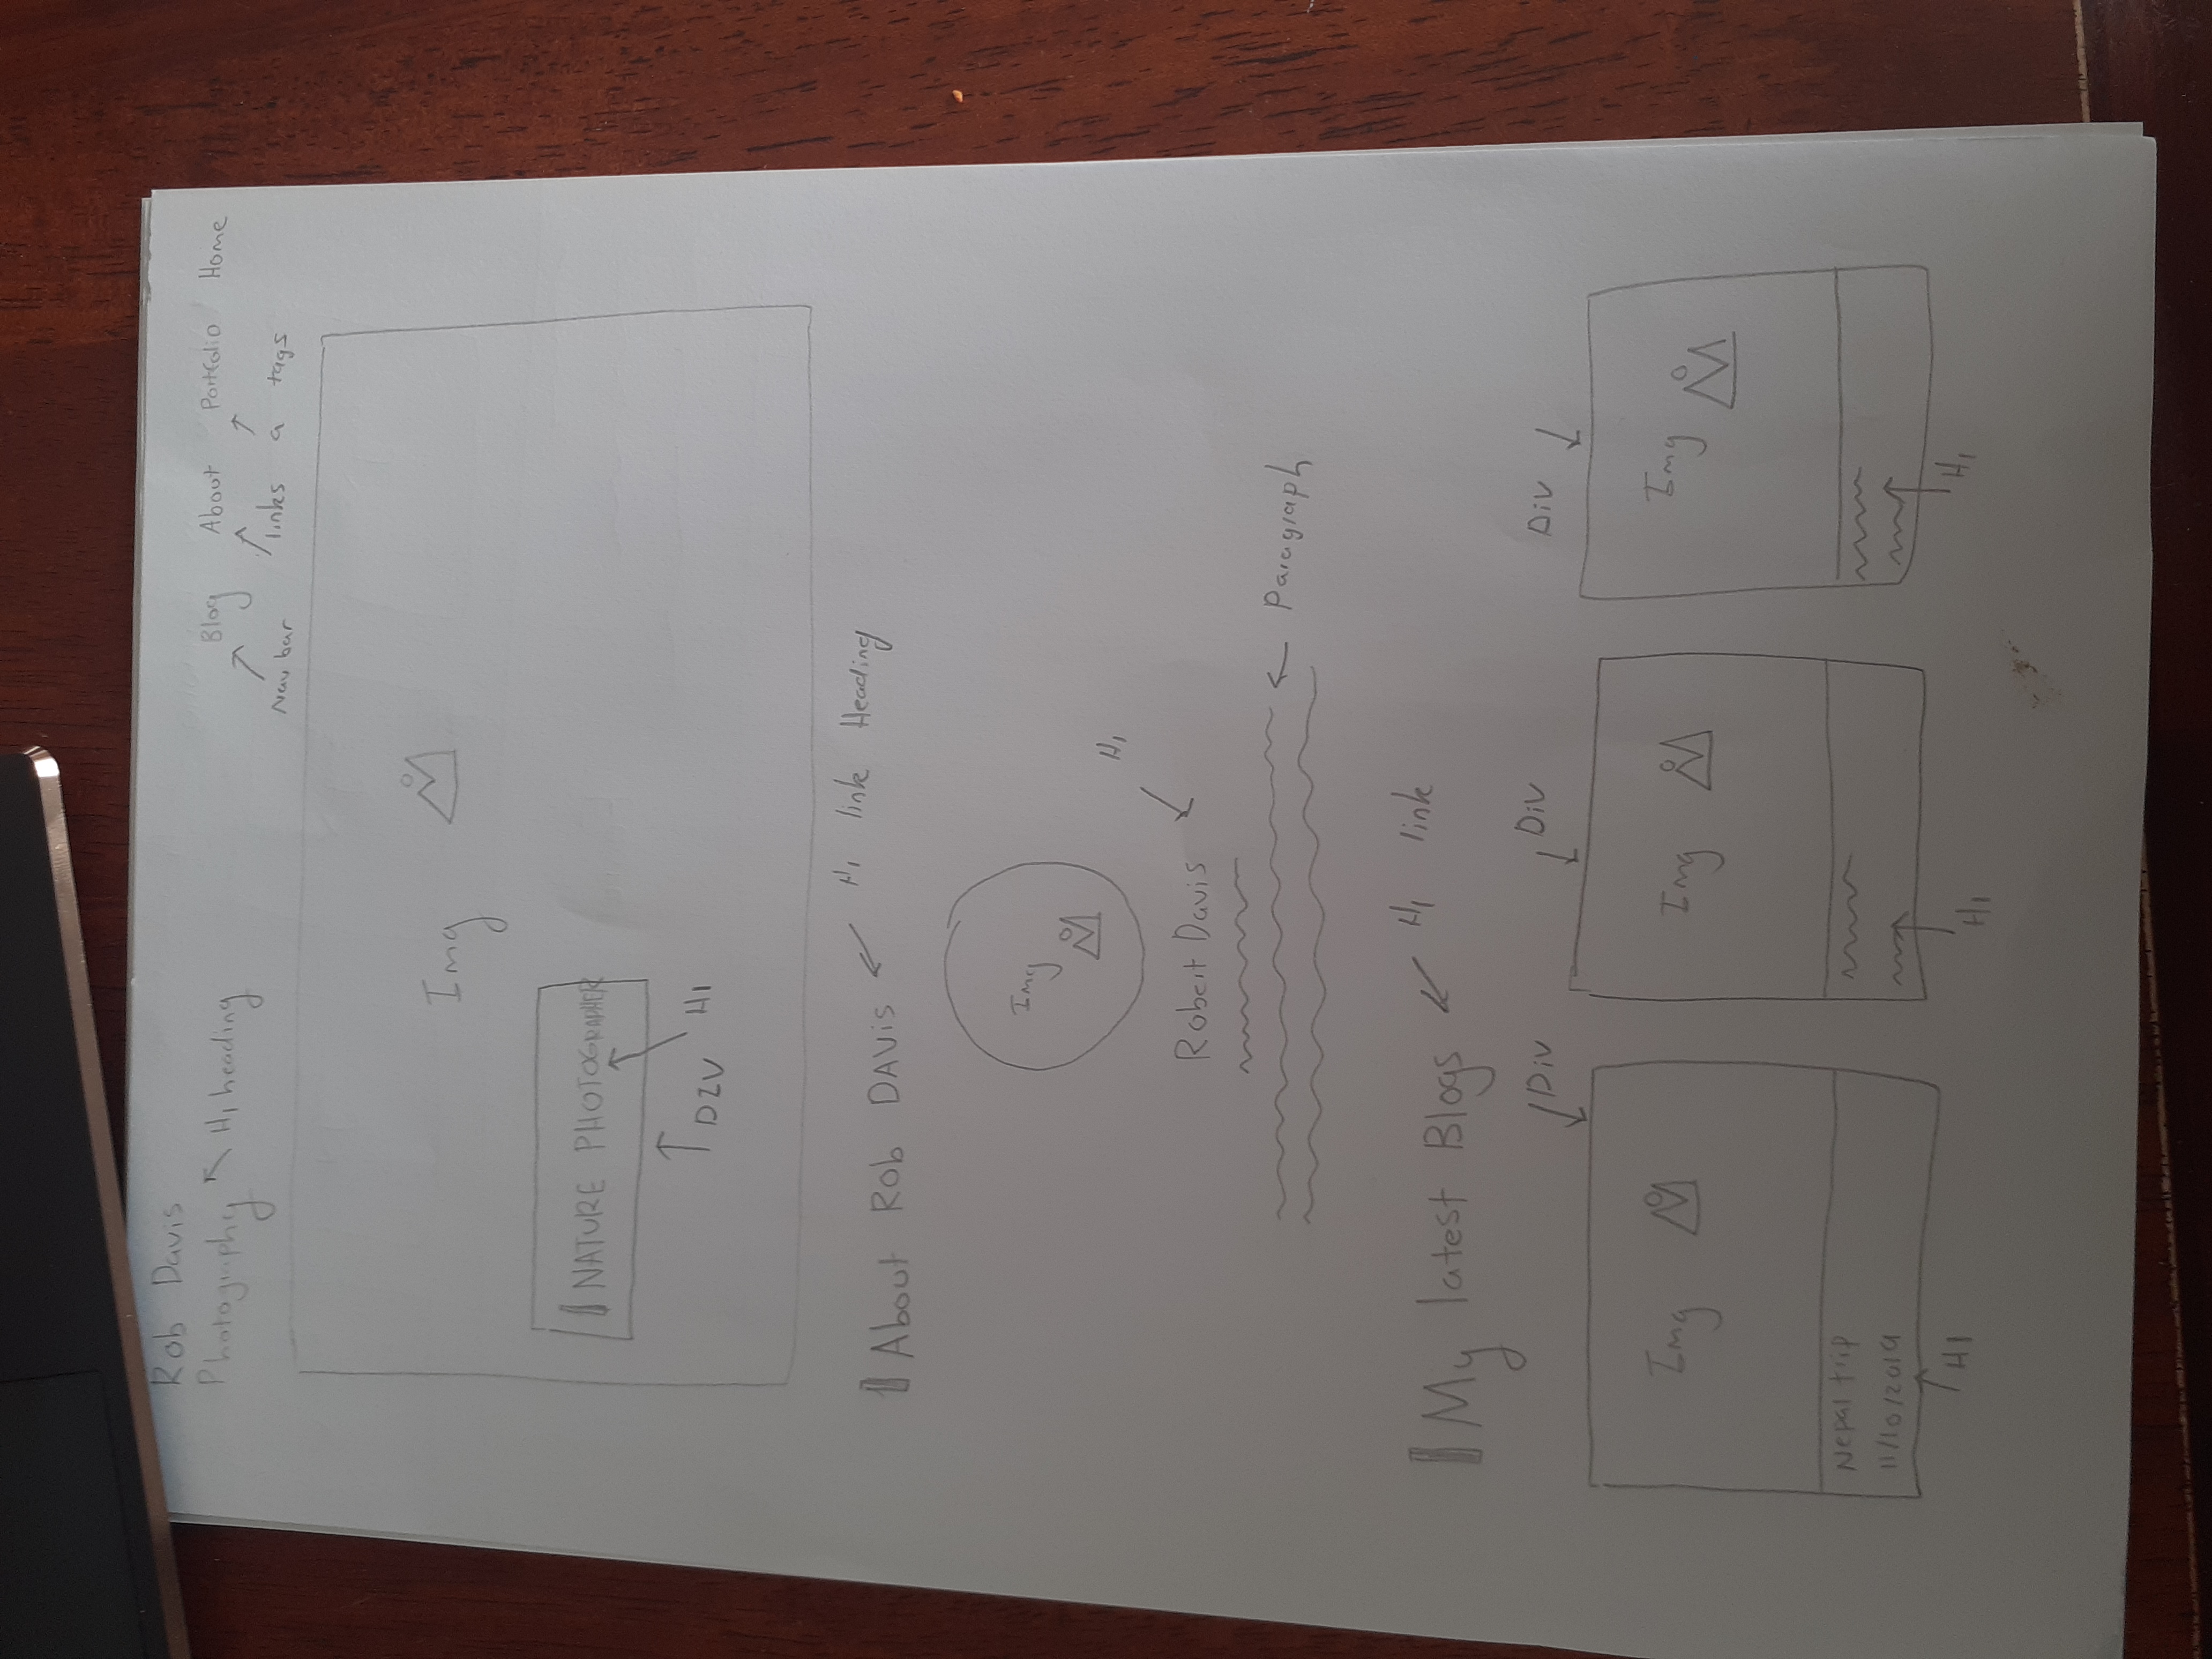 Rob Davis
Photography
H1 heading
Blog About Portfolio Home
Nav bar
links a tags
Img
NATURE PHOTOGRAPHER
DIV
H1
H1 link Heading
About Rob DAVis
Img
H1
Robert Davis
Paragraph
H1 link
My latest Blogs
Div
Div
Div
Img
Img
Img
Nepal trip
11/10/2019
H1
H1
H1